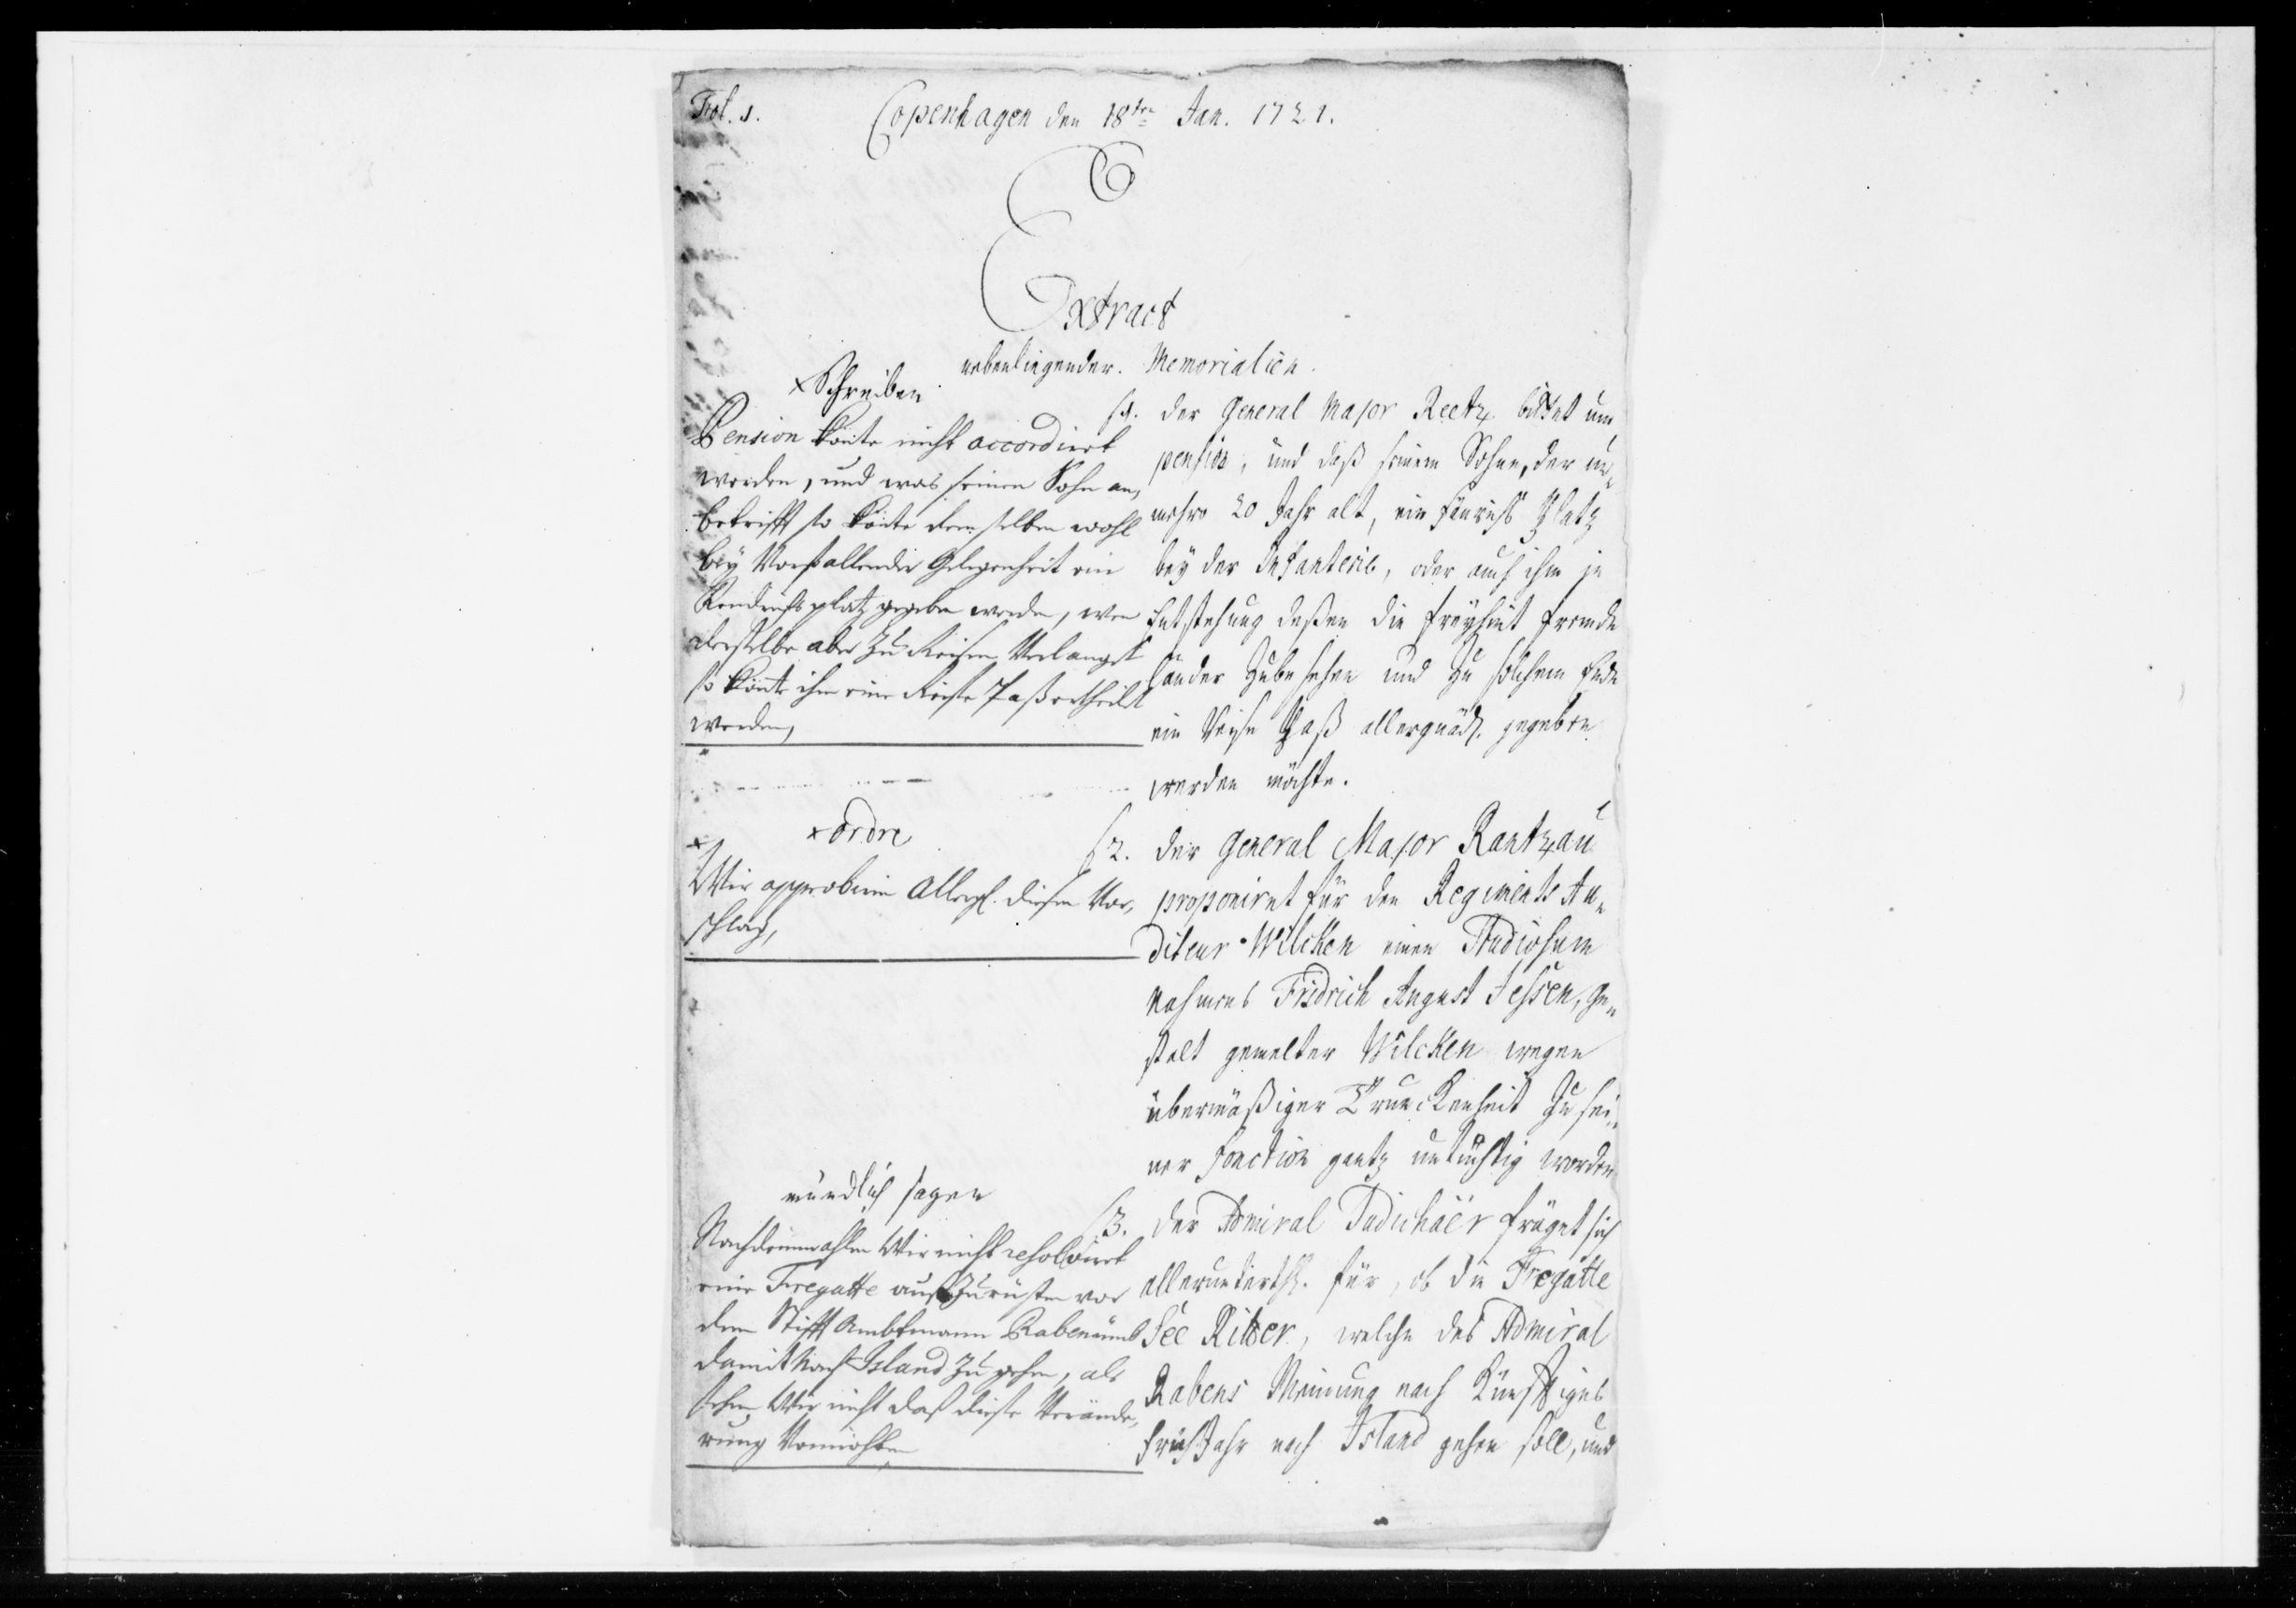 Fol. 1.
Copenhagen den 18ten Jan. 1721.
Extract
nebenliegender. Memorialien.
x Schreiben
Pension könte nicht accordiret
werden, und was seinen Sohn an,
betrifft so könte demselben wohl
bey Vorfallender Gelegenheit ein
platz gegeben werden, wen
derselbe aber zu Reisen Verlanget
so könte ihm eine Reise Paß ertheilet
werden,
1. der General Major Reetz bittet um
pension, und daß seinem Sohne, der nu„
mehro 20 Jahr alt, ein Fänrichs Platz
bey der Infanterie, oder auch ihm in
Entstehung deßen die freyheit fremde
Länder Zubesehen und Zu solchem Ende
ein Reyse Paß allergnädl. gegeben
werden möchte.
x ordre
x Wir approbiren Allergl. diesen Vor,
schlag,
2. der General Major Rantzau
proponiret für den Regiments Au„
diteur Wilcken einen Studiosum
Nahmens Fridrich August Jessen, Ge„
stalt gemelter Wilcken wegen
übermäßiger Trunckenheit Zu sei„
ner Fonction gantz untüchtig worden
mündlich sagen
Nachdemmahlen Wir nicht resolviret
eine Fregatte auszurüsten vor
dem Stifft Ambtmann Raben umb
damit Nach Island zu gehen, als
sehen Wir nicht daß diese Verände,
rung Vonnöhten
3. der Admiral Judichaer fräget sich
alleruntertht. für, ob die Fregatte
See Ritter, welche des Admiral
Rabens Meinung nach Künfftiges
früh Jahr nach Island gehen soll, und